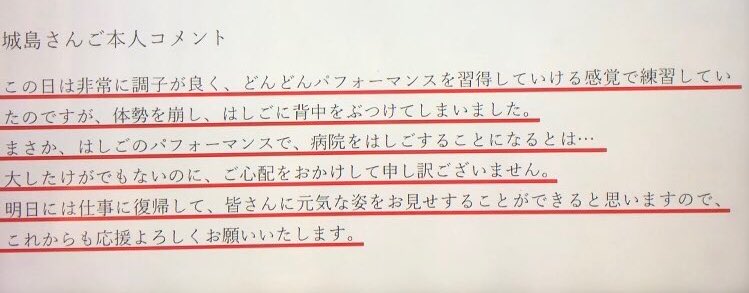 城島さんご本人コメント
この日は非常に調子が良く、どんどんパフォーマンスを習得していける感覚で練習してい
たのですが、体勢を崩し、はしごに背中をぶつけてしまいました。
まさか、はしごのパフォーマンスで、病院をはしごすることになるとは…
大したけがでもないのに、ご心配をおかけして申し訳ございません。
明日には仕事に復帰して、皆さんに元気な姿をお見せすることができると思いますので、
これからも応援よろしくお願いいたします。